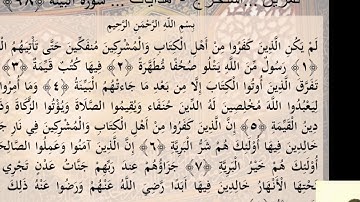 تمرين ... استخراج هدايات ... سورة البينة ﴿٩٨﴾
بِسْمِ اللَّهِ الرَّحْمَٰنِ الرَّحِيمِ
لَمْ يَكُنِ الَّذِينَ كَفَرُوا مِنْ أَهْلِ الْكِتَابِ وَالْمُشْرِكِينَ مُنفَكِّينَ حَتَّى تَأْتِيَهُمُ
﴿١﴾ رَسُولٌ مِّنَ اللَّهِ يَتْلُو صُحُفًا مُّطَهَّرَةً ﴿٢﴾ فِيهَا كُتُبٌ قَيِّمَةٌ ﴿٣﴾
تَفَرَّقَ الَّذِينَ أُوتُوا الْكِتَابَ إِلَّا مِن بَعْدِ مَا جَاءَتْهُمُ الْبَيِّنَةُ ﴿٤﴾ وَمَا أُمِرُوا
لِيَعْبُدُوا اللَّهَ مُخْلِصِينَ لَهُ الدِّينَ حُنَفَاءَ وَيُقِيمُوا الصَّلَاةَ وَيُؤْتُوا الزَّكَاةَ وَذَ
دِينُ الْقَيِّمَةِ ﴿٥﴾ إِنَّ الَّذِينَ كَفَرُوا مِنْ أَهْلِ الْكِتَابِ وَالْمُشْرِكِينَ فِي نَارِ جَ
خَالِدِينَ فِيهَا أُولَٰئِكَ هُمْ شَرُّ الْبَرِيَّةِ ﴿٦﴾ إِنَّ الَّذِينَ آمَنُوا وَعَمِلُوا الصَّالِحَ
أُولَٰئِكَ هُمْ خَيْرُ الْبَرِيَّةِ ﴿٧﴾ جَزَاؤُهُمْ عِندَ رَبِّهِمْ جَنَّاتُ عَدْنٍ تَجْرِي
تَحْتِهَا الْأَنْهَارُ خَالِدِينَ فِيهَا أَبَدًا رَّضِيَ اللَّهُ عَنْهُمْ وَرَضُوا عَنْهُ ذَٰلِكَ